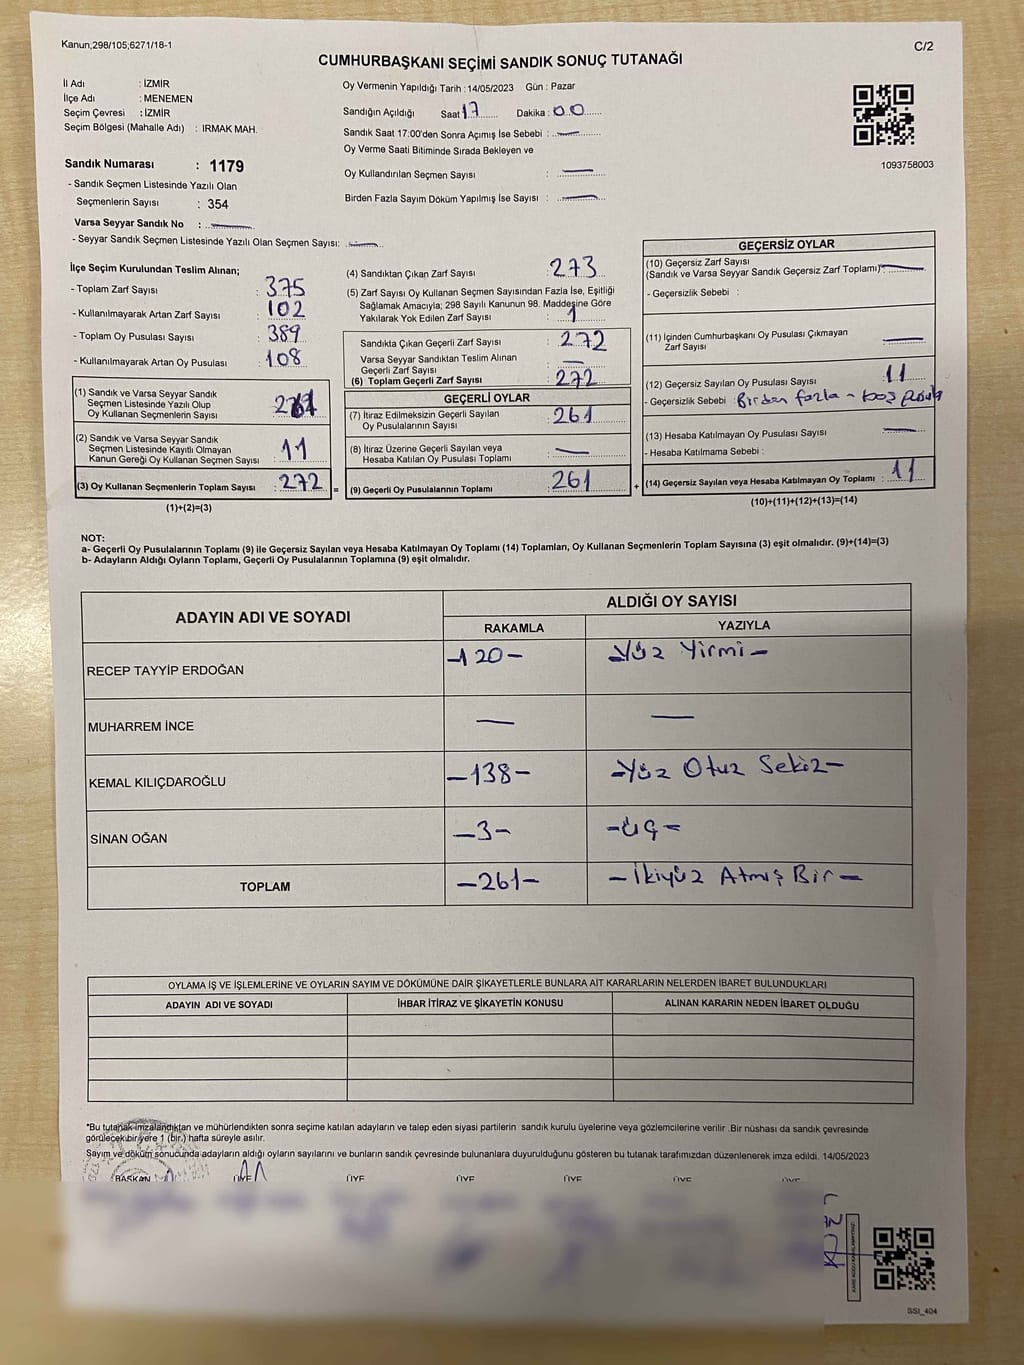 Kanun;298/105;6271/18-1
C/2
CUMHURBAŞKANI SEÇİMİ SANDIK SONUÇ TUTANAĞI
İl Adı : İZMİR
İlçe Adı : MENEMEN
Seçim Çevresi : İZMİR
Seçim Bölgesi (Mahalle Adı) : IRMAK MAH.
Oy Vermenin Yapıldığı Tarih :14/05/2023 Gün : Pazar
Sandığın Açıldığı Saat 17 Dakika : 00
Sandık Saat 17:00'den Sonra Açımış İse Sebebi : —
Oy Verme Saati Bitiminde Sırada Bekleyen ve
Oy Kullandırılan Seçmen Sayısı : —
Birden Fazla Sayım Döküm Yapılmış İse Sayısı : —
1093758003
Sandık Numarası : 1179
- Sandık Seçmen Listesinde Yazılı Olan
Seçmenlerin Sayısı : 354
Varsa Seyyar Sandık No : —
- Seyyar Sandık Seçmen Listesinde Yazılı Olan Seçmen Sayısı: —
İlçe Seçim Kurulundan Teslim Alınan;
- Toplam Zarf Sayısı : 375
- Kullanılmayarak Artan Zarf Sayısı : 102
- Toplam Oy Pusulası Sayısı : 389
- Kullanılmayarak Artan Oy Pusulası : 108
(1) Sandık ve Varsa Seyyar Sandık
Seçmen Listesinde Yazılı Olup
Oy Kullanan Seçmenlerin Sayısı : 261
(2) Sandık ve Varsa Seyyar Sandık
Seçmen Listesinde Kayıtlı Olmayan
Kanun Gereği Oy Kullanan Seçmen Sayısı : 11
(3) Oy Kullanan Seçmenlerin Toplam Sayısı : 272
(1)+(2)=(3)
(4) Sandıktan Çıkan Zarf Sayısı : 273
(5) Zarf Sayısı Oy Kullanan Seçmen Sayısından Fazla İse, Eşitliği
Sağlamak Amacıyla; 298 Sayılı Kanunun 98. Maddesine Göre
Yakılarak Yok Edilen Zarf Sayısı : 1
Sandıkta Çıkan Geçerli Zarf Sayısı : 272
Varsa Seyyar Sandıktan Teslim Alınan
Geçerli Zarf Sayısı : —
(6) Toplam Geçerli Zarf Sayısı : 272
GEÇERLİ OYLAR
(7) İtiraz Edilmeksizin Geçerli Sayılan
Oy Pusulalarının Sayısı : 261
(8) İtiraz Üzerine Geçerli Sayılan veya
Hesaba Katılan Oy Pusulası Toplamı : —
= (9) Geçerli Oy Pusulalarının Toplamı : 261
GEÇERSİZ OYLAR
(10) Geçersiz Zarf Sayısı
(Sandık ve Varsa Seyyar Sandık Geçersiz Zarf Toplamı): —
- Geçersizlik Sebebi :
(11) İçinden Cumhurbaşkanı Oy Pusulası Çıkmayan
Zarf Sayısı : —
(12) Geçersiz Sayılan Oy Pusulası Sayısı : 11
- Geçersizlik Sebebi : Birden fazla - boş pusula
(13) Hesaba Katılmayan Oy Pusulası Sayısı : —
- Hesaba Katılmama Sebebi :
+ (14) Geçersiz Sayılan veya Hesaba Katılmayan Oy Toplamı : 11
(10)+(11)+(12)+(13)=(14)
NOT:
a- Geçerli Oy Pusulalarının Toplamı (9) ile Geçersiz Sayılan veya Hesaba Katılmayan Oy Toplamı (14) Toplamları, Oy Kullanan Seçmenlerin Toplam Sayısına (3) eşit olmalıdır. (9)+(14)=(3)
b- Adayların Aldığı Oyların Toplamı, Geçerli Oy Pusulalarının Toplamına (9) eşit olmalıdır.
ADAYIN ADI VE SOYADI
ALDIĞI OY SAYISI
RAKAMLA YAZIYLA
RECEP TAYYİP ERDOĞAN -120- -Yüz Yirmi-
MUHARREM İNCE — —
KEMAL KILIÇDAROĞLU -138- -Yüz Otuz Sekiz-
SİNAN OĞAN -3- -Üç-
TOPLAM -261- -İkiyüz Atmış Bir-
OYLAMA İŞ VE İŞLEMLERİNE VE OYLARIN SAYIM VE DÖKÜMÜNE DAİR ŞİKAYETLERLE BUNLARA AİT KARARLARIN NELERDEN İBARET BULUNDUKLARI
ADAYIN ADI VE SOYADI İHBAR İTİRAZ VE ŞİKAYETİN KONUSU ALINAN KARARIN NEDEN İBARET OLDUĞU
*Bu tutanak imzalandıktan ve mühürlendikten sonra seçime katılan adayların ve talep eden siyasi partilerin sandık kurulu üyelerine veya gözlemcilerine verilir .Bir nüshası da sandık çevresinde
görülecek bir yere 1 (bir.) hafta süreyle asılır.
Sayım ve döküm sonucunda adayların aldığı oyların sayılarını ve bunların sandık çevresinde bulunanlara duyurulduğunu gösteren bu tutanak tarafımızdan düzenlenerek imza edildi. 14/05/2023
BAŞKAN ÜYE ÜYE ÜYE ÜYE ÜYE ÜYE
SSİ_404